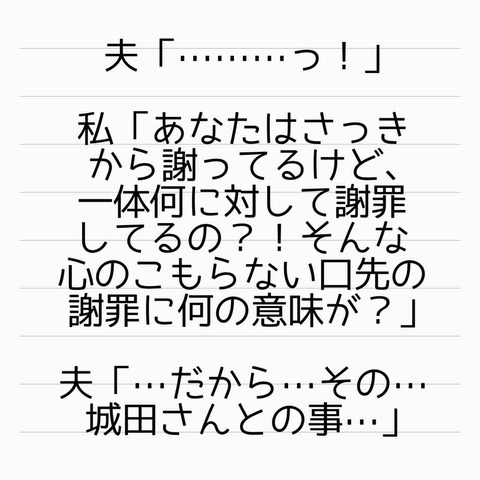 夫「………っ！」
私「あなたはさっき
から謝ってるけど、
一体何に対して謝罪
してるの？！そんな
心のこもらない口先の
謝罪に何の意味が？」
夫「…だから…その…
城田さんとの事…」